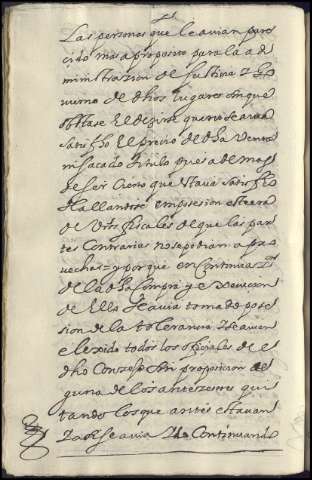 Las personas que le avian pare
cido mas aproposito para la ad
ministrazion de Justicia y Go
vierno de dhos lugares sin que
obstase El dezirse que no se avia
satisfho El precio de dha Venta
ni sacado titulo pues a demas
de ser cierto que estava satisfho
hallandose en posesion
de que las par
tes Contrarias no se podian apro
vechar = y porque en Continuaz.on
de la dha Compra y en execucion
de Ella se avia tomado pose
sion de la
elexido todos los ofiziales de el
dho Conzejo sin proposicion al
guna de los antezesores qui
tando los que antes estavan
se avia Ido Continuando